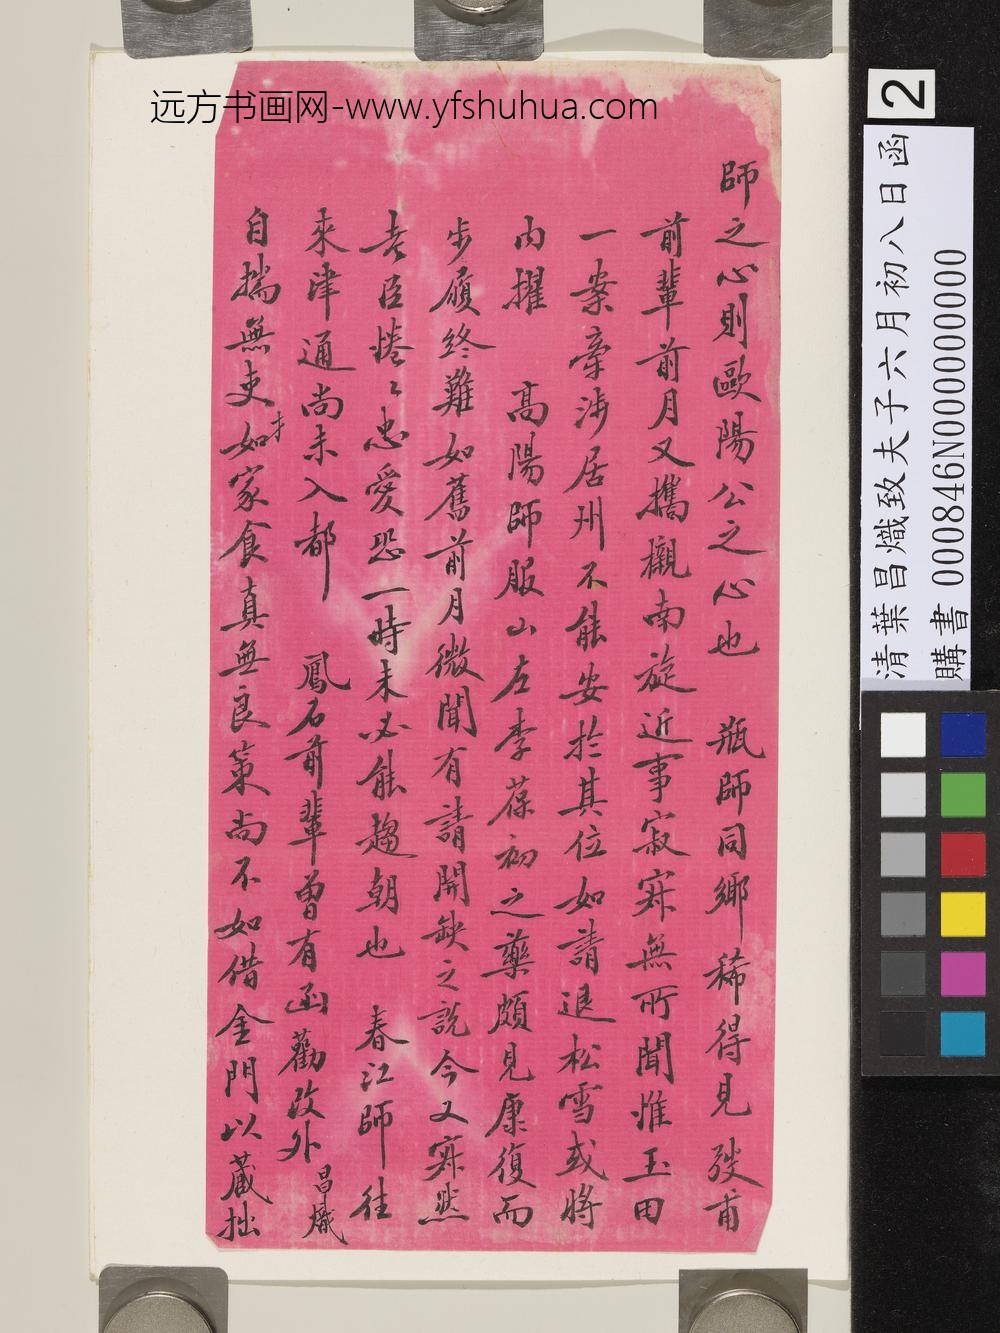 远方书画网-www.yfshuhua.com
師之心則歐陽公之心也　瓶師同鄉稀得見弢甫
前輩前月又攜櫬南旋近事寂寂無所聞惟玉田
一案牽涉居州不能安於其位如請退松雪或將
內擢　高陽師服山左李葆初之藥頗見康復而
步履終難如舊前月微聞有請開缺之說今又寂然
老臣惓〻忠愛恐一時未必能趨朝也　春江師往
來津通尚未入都　鳳石前輩曾有函勸改外昌熾
自揣無吏才如家食真無良策尚不如借金門以藏拙
2
清葉昌熾致夫子六月初八日函
購書 000846N000000000